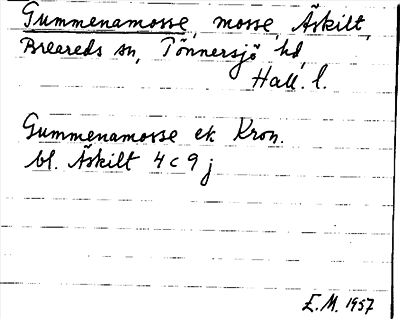 Gummenamosse, mosse, Äskilt,
Breareds sn, Tönnersjö hd,
Hall. l.
Gummenamosse ek Kron.
bl. Äskilt 4 c 9 j
E.M. 1957